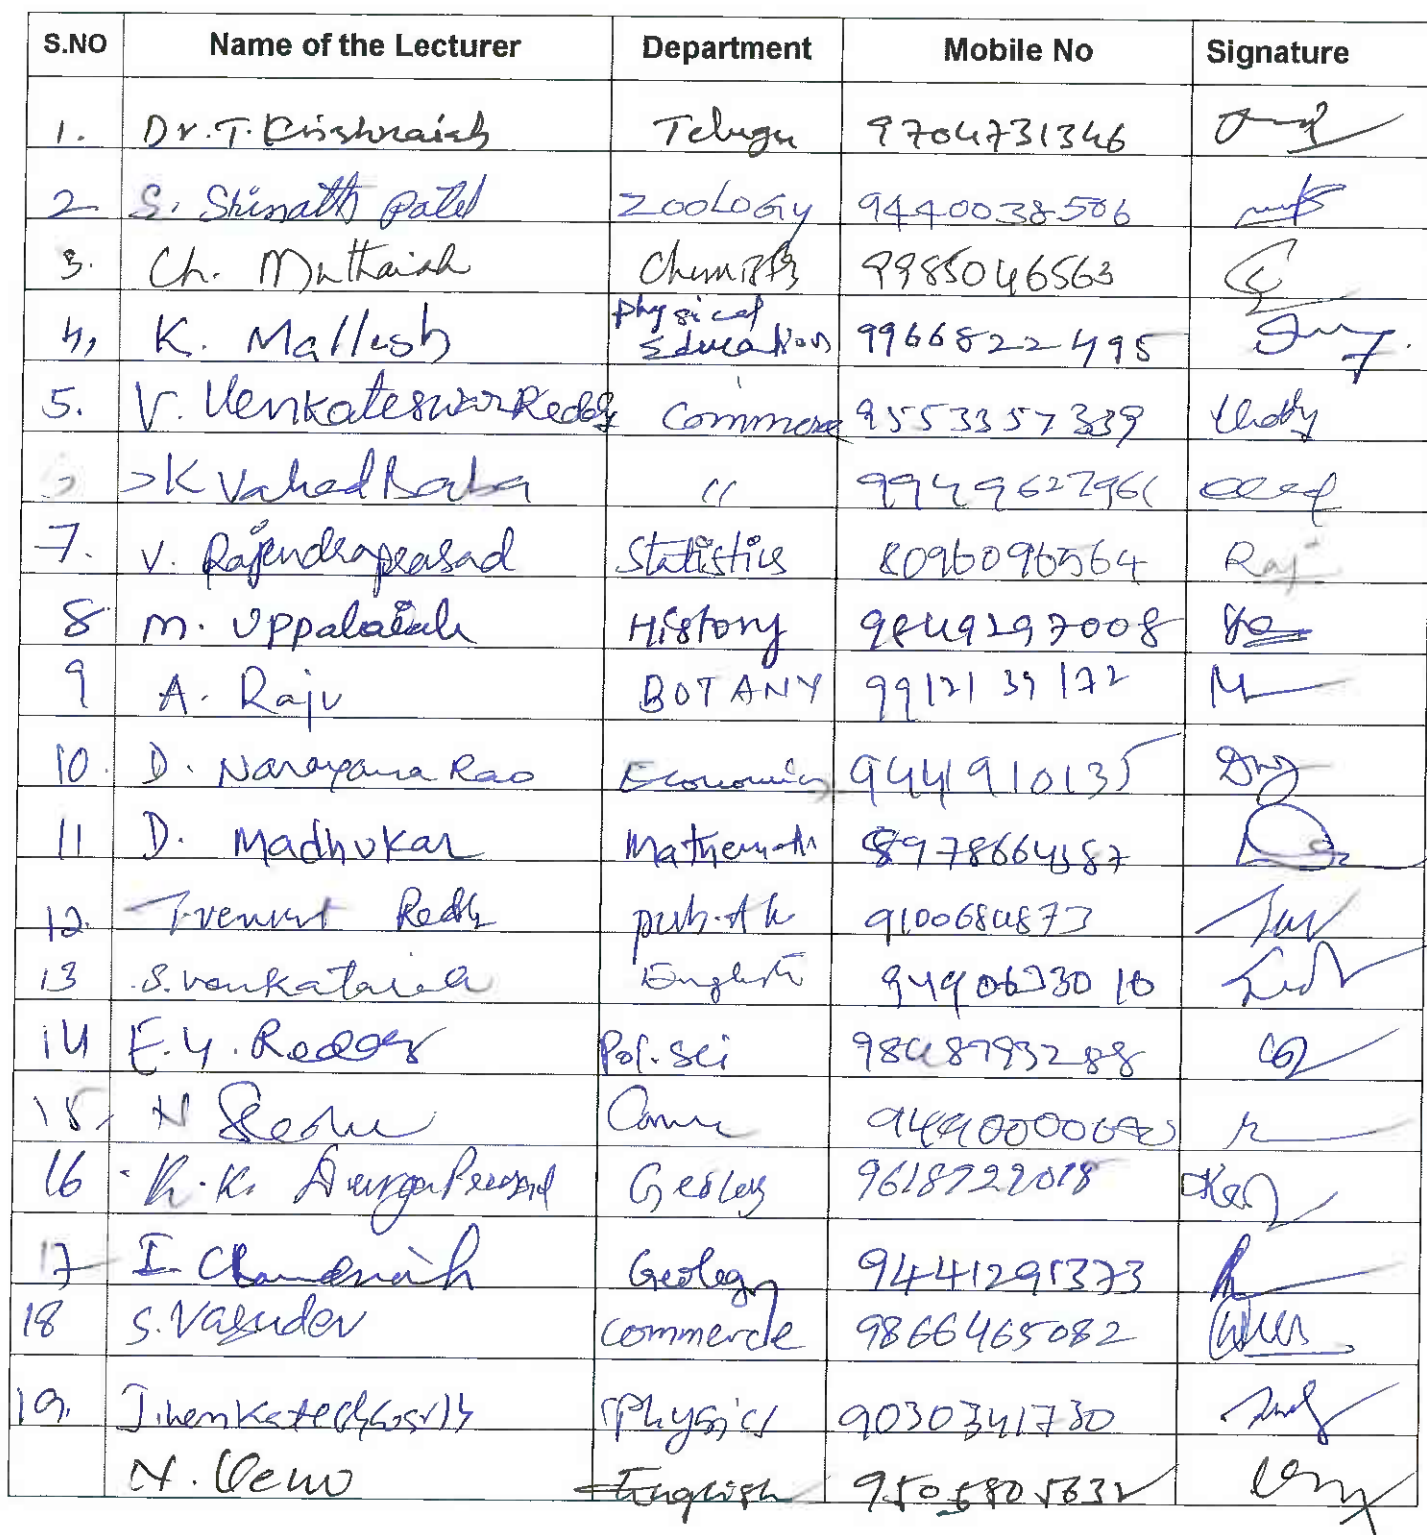 S.NO Name of the Lecturer Department Mobile No Signature
1. Dr. T. Krishnaiah Telugu 9704731346
2 S. Shinath Patel ZOOLOGY 9440038506
3. Ch. Muthaiah Chemistry 9985046563
4, K. Mallesh Physical Education 9966822495
5. V. Venkateswar Reddy Commerce 9553357339
SK Vahed Baba " 9949627961
7. V. Rajendraprasad Statistics 8096096564 Raj
8 M. Uppalaiah History 9849297008
9 A. Raju BOTANY 9912139172
10. D. Narayana Rao Economics 9441910135
11 D. Madhukar 8978664387
12. T. Venkat Reddy 9100684873
13 S. Venkataiah English 9490633010
14 E. Y. Reddy Pol. Sci 9848793288
15. N
16 K. K. Durga Prasad Geology
17 I. Chandraiah Geology 9441291373
18 S. Vasudev commerce 9866465082
19. Physics 9030341730
N. Venu English 9505805632